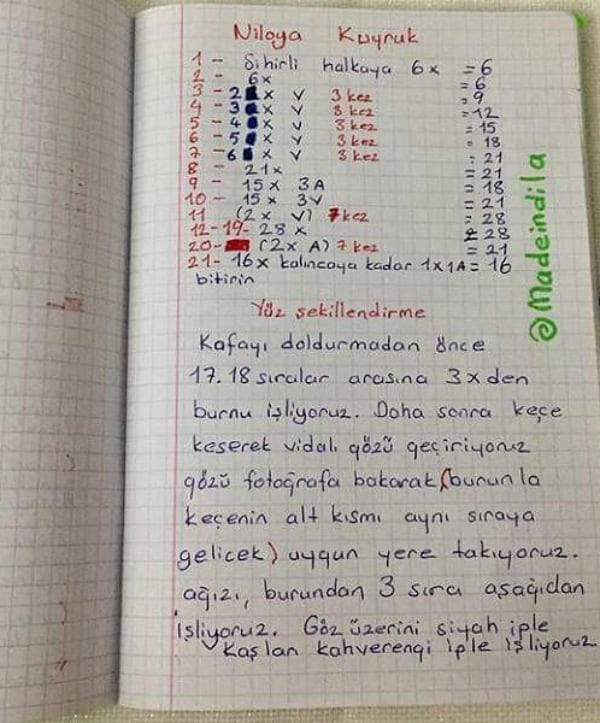 Niloya Kuyruk
1 - Sihirli halkaya 6x = 6
2 - 6x = 6
3 - 2x V 3 kez = 9
4 - 3x V 3 kez = 12
5 - 4x V 3 kez = 15
6 - 5x V 3 kez = 18
7 - 6x V 3 kez = 21
8 - 21x = 21
9 - 15x 3A = 18
10 - 15x 3V = 21
11 (2x V) 7 kez = 28
12-19- 28x = 28
20- (2x A) 7 kez = 21
21- 16x kalıncaya kadar 1x1A = 16
bitirin
Yüz şekillendirme
Kafayı doldurmadan önce
17.18 sıralar arasına 3x den
burnu işliyoruz. Daha sonra keçe
keserek vidalı gözü geçiriyoruz
gözü fotoğrafa bakarak (burunla
keçenin alt kısmı aynı sıraya
gelicek) uygun yere takıyoruz.
ağızı, burundan 3 sıra aşağıdan
işliyoruz. Göz üzerini siyah iple
Kaşları kahverengi iple işliyoruz
@Madeindila